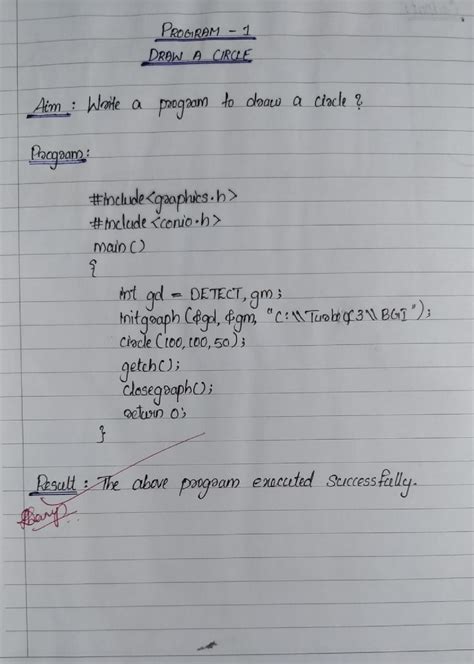 PROGRAM - 1
DRAW A CIRCLE
Aim : Write a program to draw a circle ?
Program :
#include<graphics.h>
#include <conio.h>
main()
{
int gd = DETECT, gm;
initgraph (&gd, &gm, "C:\\TurboC3\\BGI");
circle (100, 100, 50);
getch();
closegraph();
return 0;
}
Result : The above program executed successfully.